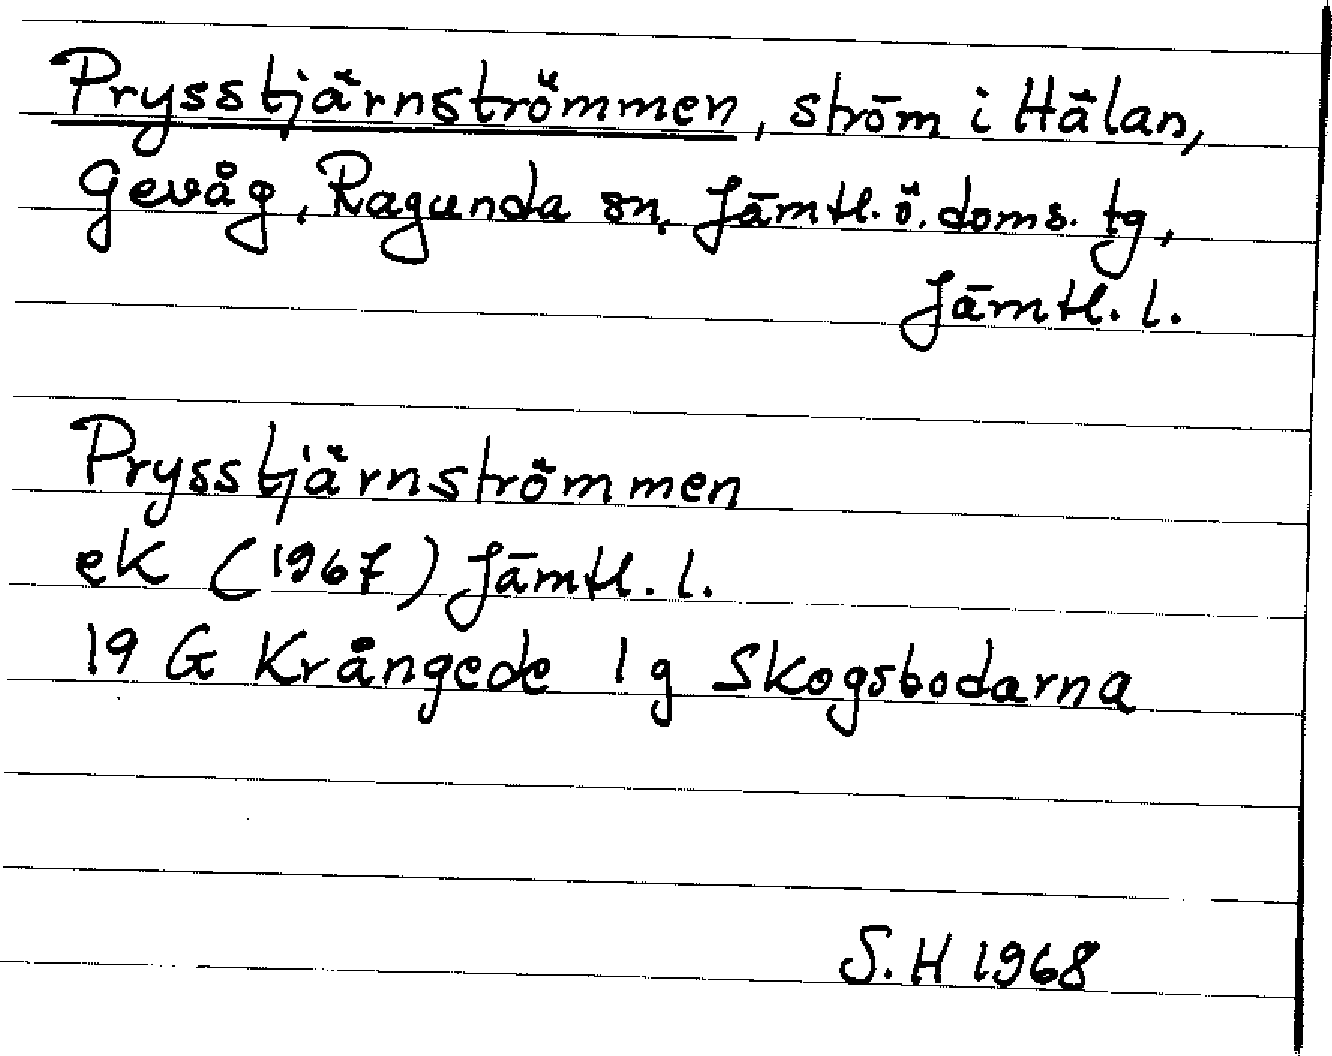 Prysstjärnströmmen, ström i Hälan,
Gevåg, Ragunda sn, Jämtl. ö. doms. tg,
Jämtl. l.
Prysstjärnströmmen
ek (1967) Jämtl. l.
19 G Krångede 1 g Skogsbodarna
S. H 1968